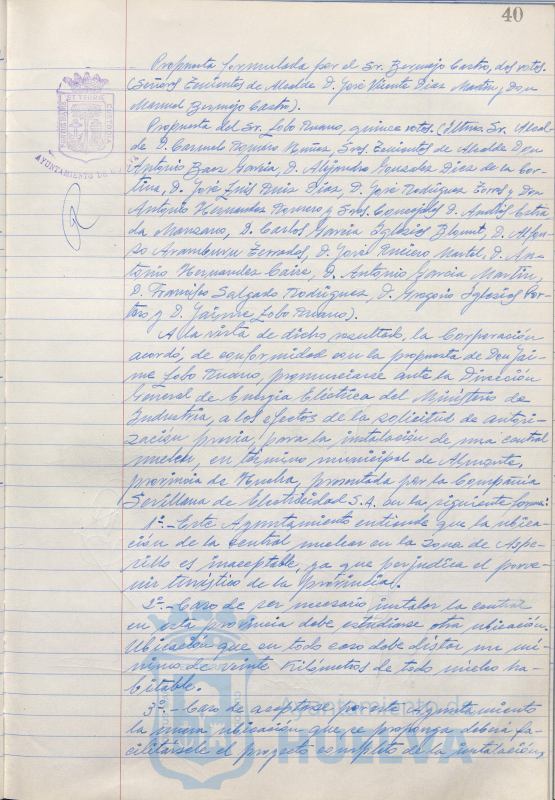 40
Propuesta formulada por el Sr. Bermejo Castro, dos votos.
(Señores Tenientes de Alcalde D. José Vicente Diaz Martin, y Don
Manuel Bermejo Castro).
Propuesta del Sr. Lobo Ruano, quince votos. (Iltmo. Sr. Alcal-
de D. Carmelo Romero Nuñez, Sres. Tenientes de Alcalde Don
Antonio Baez Garcia, D. Alejandro Gonzalez Diez de la Cor-
tina, D. José Luis Ruiz Diaz, D. José Rodriguez Torres y Don
Antonio Hernandez Romero y Sres. Concejales D. Andrés Estra
da Manzano, D. Carlos Garcia Iglesias Blanut, D. Alfon-
so Aramburu Terrades, D. José Riñero Martel, D. An-
tonio Hernandez Caire, D. Antonio Garcia Martin,
D. Francisco Salgado Rodriguez, D. Gregorio Iglesias Por-
tero y D. Jaime Lobo Ruano).
A la vista de dicho resultado, la Corporación
acordó, de conformidad con la propuesta de Don Jai-
me Lobo Ruano, pronunciarse ante la Dirección
General de Energia Eléctrica del Ministerio de
Industria, a los efectos de la solicitud de autori-
zación previa, para la instalación de una central
nuclear, en término municipal de Almonte,
provincia de Huelva, presentada por la Compañia
Sevillana de Electricidad S.A. en la siguiente forma:
1º.- Este Ayuntamiento entiende que la ubica-
ción de la central nuclear en la zona de Aspe-
rillo es inaceptable, ya que perjudica el porve-
nir turístico de la provincia.
2º.- Caso de ser necesario instalar la central
en esta provincia debe estudiarse otra ubicación.
Ubicación que en todo caso debe distar un mí-
nimo de veinte Kilómetros de todo núcleo ha-
bitable.
3º.- Caso de aceptarse por este Ayuntamiento
la nueva ubicación que se proponga deberá fa-
cilitársele el proyecto completo de la instalación,
AYUNTAMIENTO DE
Ayuntamiento de
HUELVA